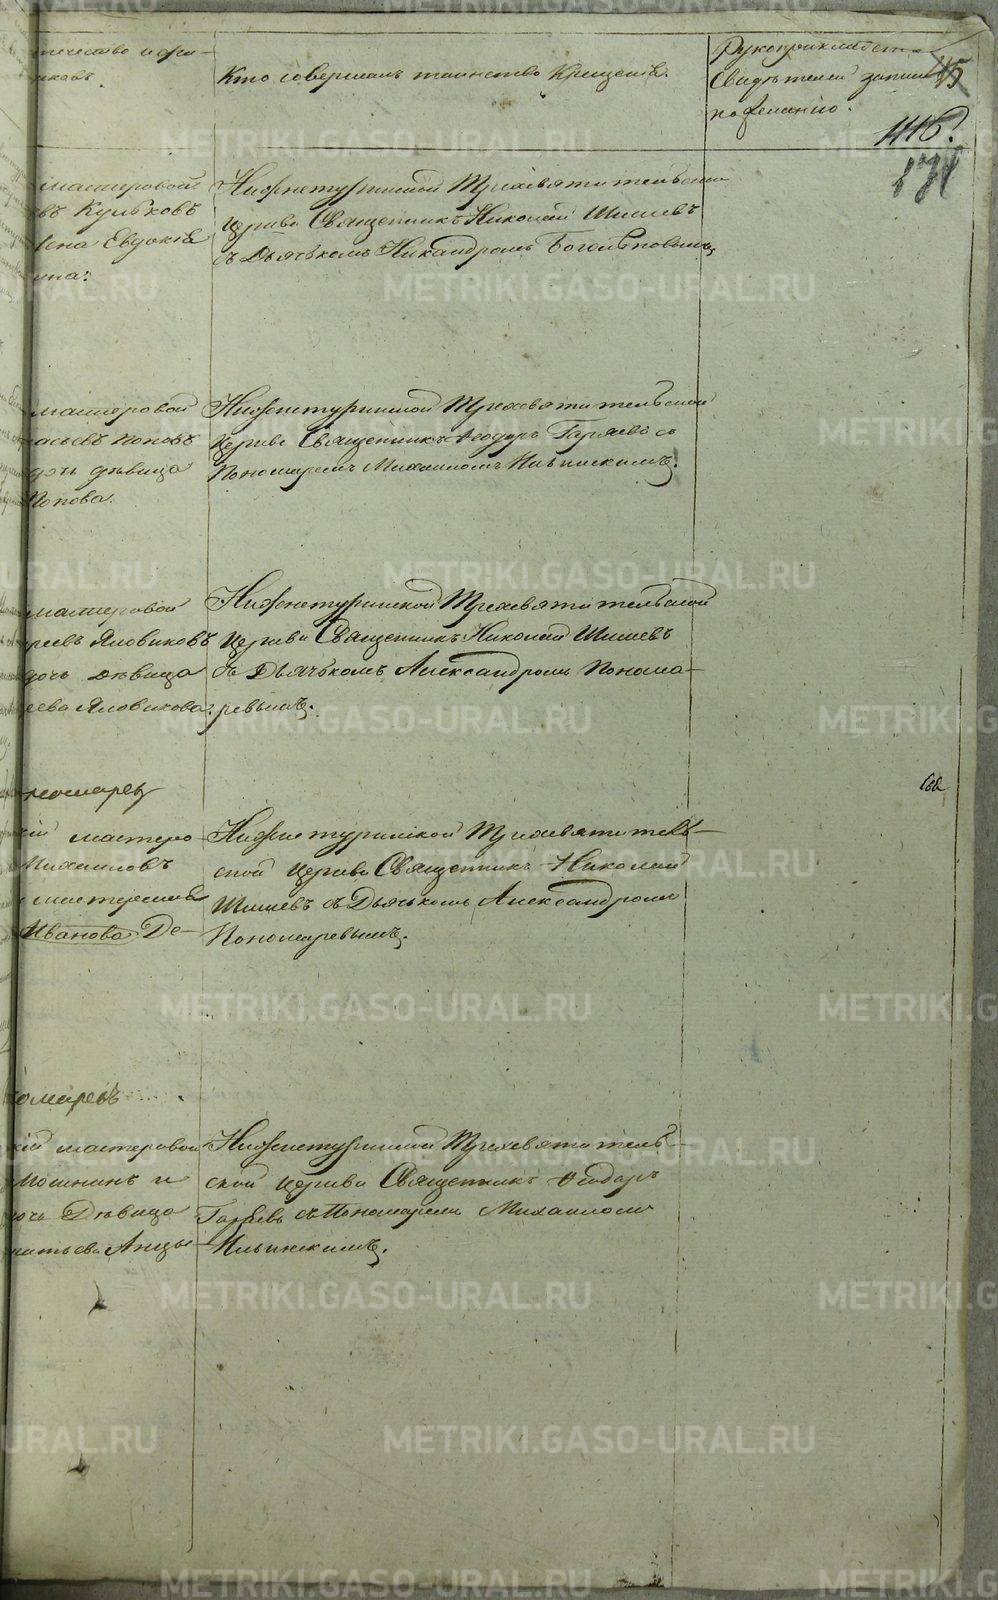 Кто совершалъ таинство Крещенія.
Рукоприкладство
Свидѣтелей записи
по желанію.
115
116.
мастеровой
въ Кульковъ
Евдокія
Нижнетуринской Трехсвятительской
Церкви Священникъ Николай Шишевъ
съ Дьячкомъ Никандромъ
мастеровой
Поповъ
дочь дѣвица
Попова.
Нижнетуринской Трехсвятительской
Церкви Священникъ Ѳеодоръ Гаряевъ съ
Пономаремъ Михаиломъ Ильинскимъ.
мастеровой
реевъ Яловиковъ
дочь дѣвица
еева Яловикова.
Нижнетуринской Трехсвятительской
Церкви Священникъ Николай Шишевъ
съ Дьячкомъ Александромъ Понома-
ревымъ.
мастеро-
Михаиловъ
Иванова Де-
Нижнетуринской Трехсвятитель-
ской Церкви Священникъ Николай
Шишевъ съ Дьячкомъ Александромъ
Пономаревымъ.
омаревъ
кій мастеровой
Мошнинъ и
дочь Дѣвица
Нижнетуринской Трехсвятитель-
ской Церкви Священникъ Ѳеодоръ
Гаряевъ съ Пономаремъ Михаиломъ
Ильинскимъ.
METRIKI.GASO-URAL.RU